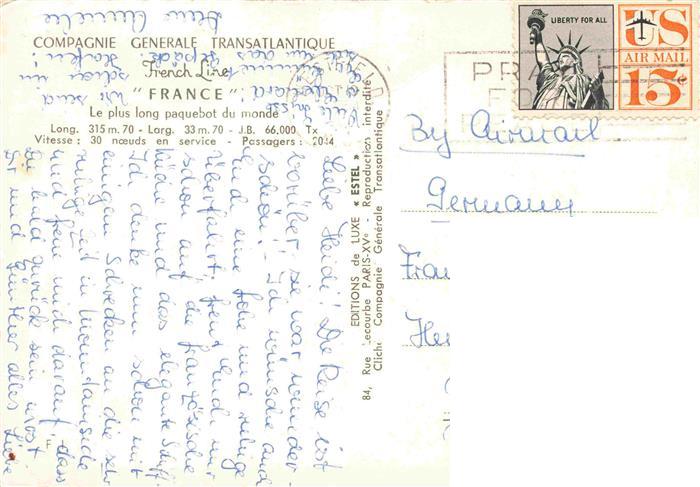 COMPAGNIE GENERALE TRANSATLANTIQUE
French Line
"FRANCE"
Le plus long paquebot du monde
Long. 315 m. 70 - Larg. 33 m. 70 - J.B. 66.000 Tx
Vitesse : 30 nœuds en service - Passagers : 2044
EDITIONS de LUXE « ESTEL »
84, Rue Lecourbe PARIS-XVe - Reproduction interdite
Cliché Compagnie Générale Transatlantique
LIBERTY FOR ALL
US
AIR MAIL
15¢
PRA
By Airmail
Germany
Frau
Liebe Heidi! Die Reise ist
vorüber! Sie war wunder-
schön! Ich wünsche auch
Euch eine frohe und ruhige
Überfahrt. freut Euch nur
schon auf die französische
Küche und das elegante Schiff.
Ich denke nun schon mit
einigen Schrecken an die sehr
ruhige Zeit in Mountainside
und freue mich darauf, dass
Du bald zurück sein wirst
Dir und Günther alles Liebe
F